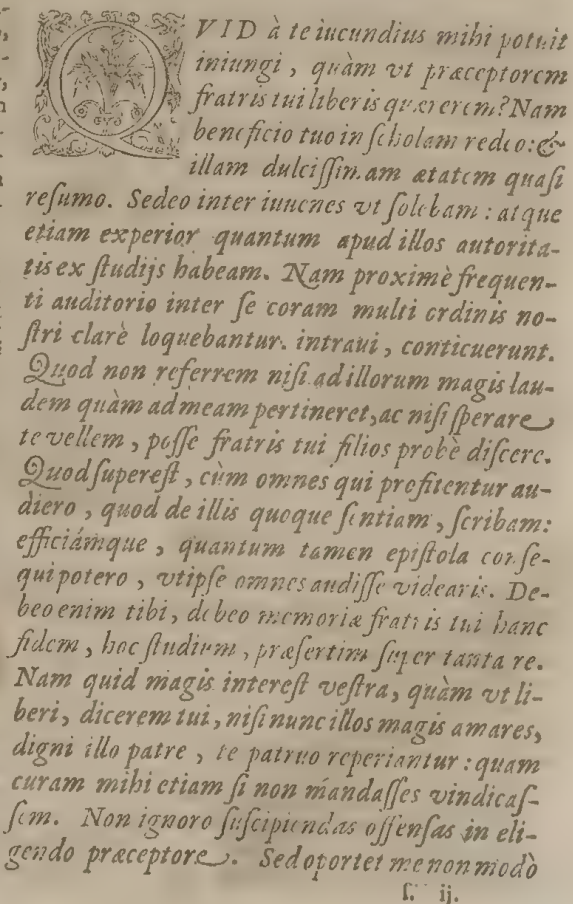 QVID à te iucundius mihi potuit
iniungi, quàm vt præceptorem
fratris tui liberis quærerem? Nam
beneficio tuo in ſcholam redeo: &
illam dulciſſimam ætatem quaſi
reſumo. Sedeo inter iuuenes vt ſolebam: atque
etiam experior quantum apud illos autorita-
tis ex ſtudijs habeam. Nam proximè frequen-
ti auditorio inter ſe coram multi ordinis no-
ſtri clarè loquebantur. intraui, conticuerunt.
Quod non referrem niſi ad illorum magis lau-
dem quàm ad meam pertineret, ac niſi ſperare
te vellem, poſſe fratris tui filios probè diſcere.
Quod ſupereſt, cùm omnes qui profitentur au-
diero, quod de illis quoque ſentiam, ſcribam:
efficiámque, quantum tamen epiſtola conſe-
qui potero, vt ipſe omnes audiſſe videaris. De-
beo enim tibi, debeo memoriæ fratris tui hanc
fidem, hoc ſtudium, præſertim ſuper tanta re.
Nam quid magis intereſt veſtra, quàm vt li-
beri, dicerem tui, niſi nunc illos magis amares,
digni illo patre, te patruo reperiantur: quam
curam mihi etiam ſi non mandaſſes vindicaſ-
ſem. Non ignoro ſuſcipiendas offenſas in eli-
gendo præceptore. Sed oportet me non modò
ſ. ij.